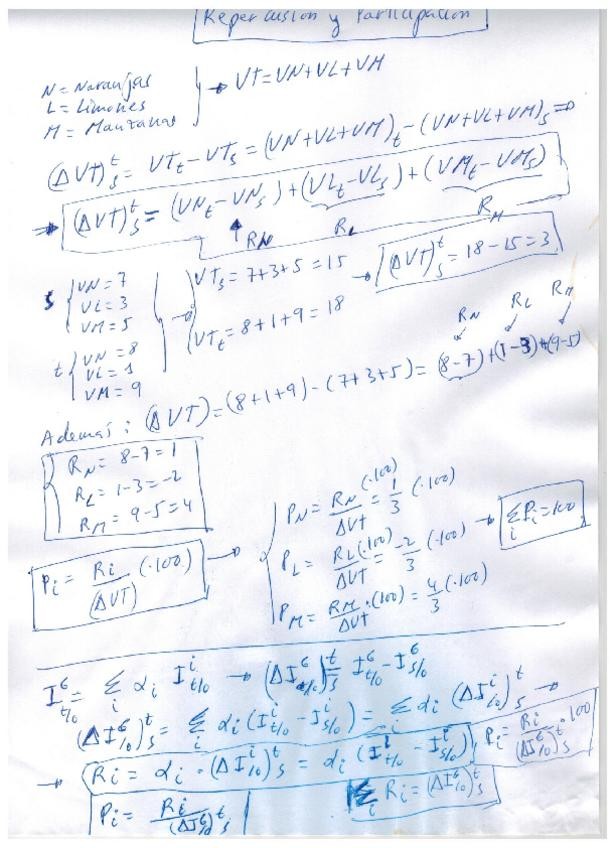 Repercusión y Participación
N = Naranjas
L = Limones
M = Manzanas
→ VT = VN + VL + VM
(ΔVT)ₛᵗ = VTₜ - VTₛ = (VN + VL + VM)ₜ - (VN + VL + VM)ₛ ⇒
⇒ (ΔVT)ₛᵗ = (VNₜ - VNₛ) + (VLₜ - VLₛ) + (VMₜ - VMₛ)
R_N R_L R_M
s { VN = 7
VL = 3
VM = 5
t { VN = 8
VL = 1
VM = 9
VTₛ = 7 + 3 + 5 = 15
VTₜ = 8 + 1 + 9 = 18
→ (ΔVT)ₛᵗ = 18 - 15 = 3
R_N R_L R_M
Además: (ΔVT) = (8 + 1 + 9) - (7 + 3 + 5) = (8 - 7) + (1 - 3) + (9 - 5)
R_N = 8 - 7 = 1
R_L = 1 - 3 = -2
R_M = 9 - 5 = 4
Pᵢ = Rᵢ / (ΔVT) (·100) →
P_N = R_N / ΔVT (·100) = 1/3 (·100)
P_L = R_L (·100) / ΔVT = -2/3 (·100)
P_M = R_M / ΔVT · (100) = 4/3 (·100)
→ Σᵢ Pᵢ = 100
I^G_{t/0} = Σᵢ αᵢ Iⁱ_{t/0} → (ΔI^G_{/0})ₛᵗ = I^G_{t/0} - I^G_{s/0}
(ΔI^G_{/0})ₛᵗ = Σᵢ αᵢ (Iⁱ_{t/0} - Iⁱ_{s/0}) = Σᵢ αᵢ (ΔIⁱ_{/0})ₛᵗ →
→ Rᵢ = αᵢ · (ΔIⁱ_{/0})ₛᵗ = αᵢ (Iⁱ_{t/0} - Iⁱ_{s/0})
Pᵢ = Rᵢ / (ΔI^G_{/0})ₛᵗ · 100
Pᵢ = Rᵢ / (ΔI^G_{/0})ₛᵗ
Σᵢ Rᵢ = (ΔI^G_{/0})ₛᵗ